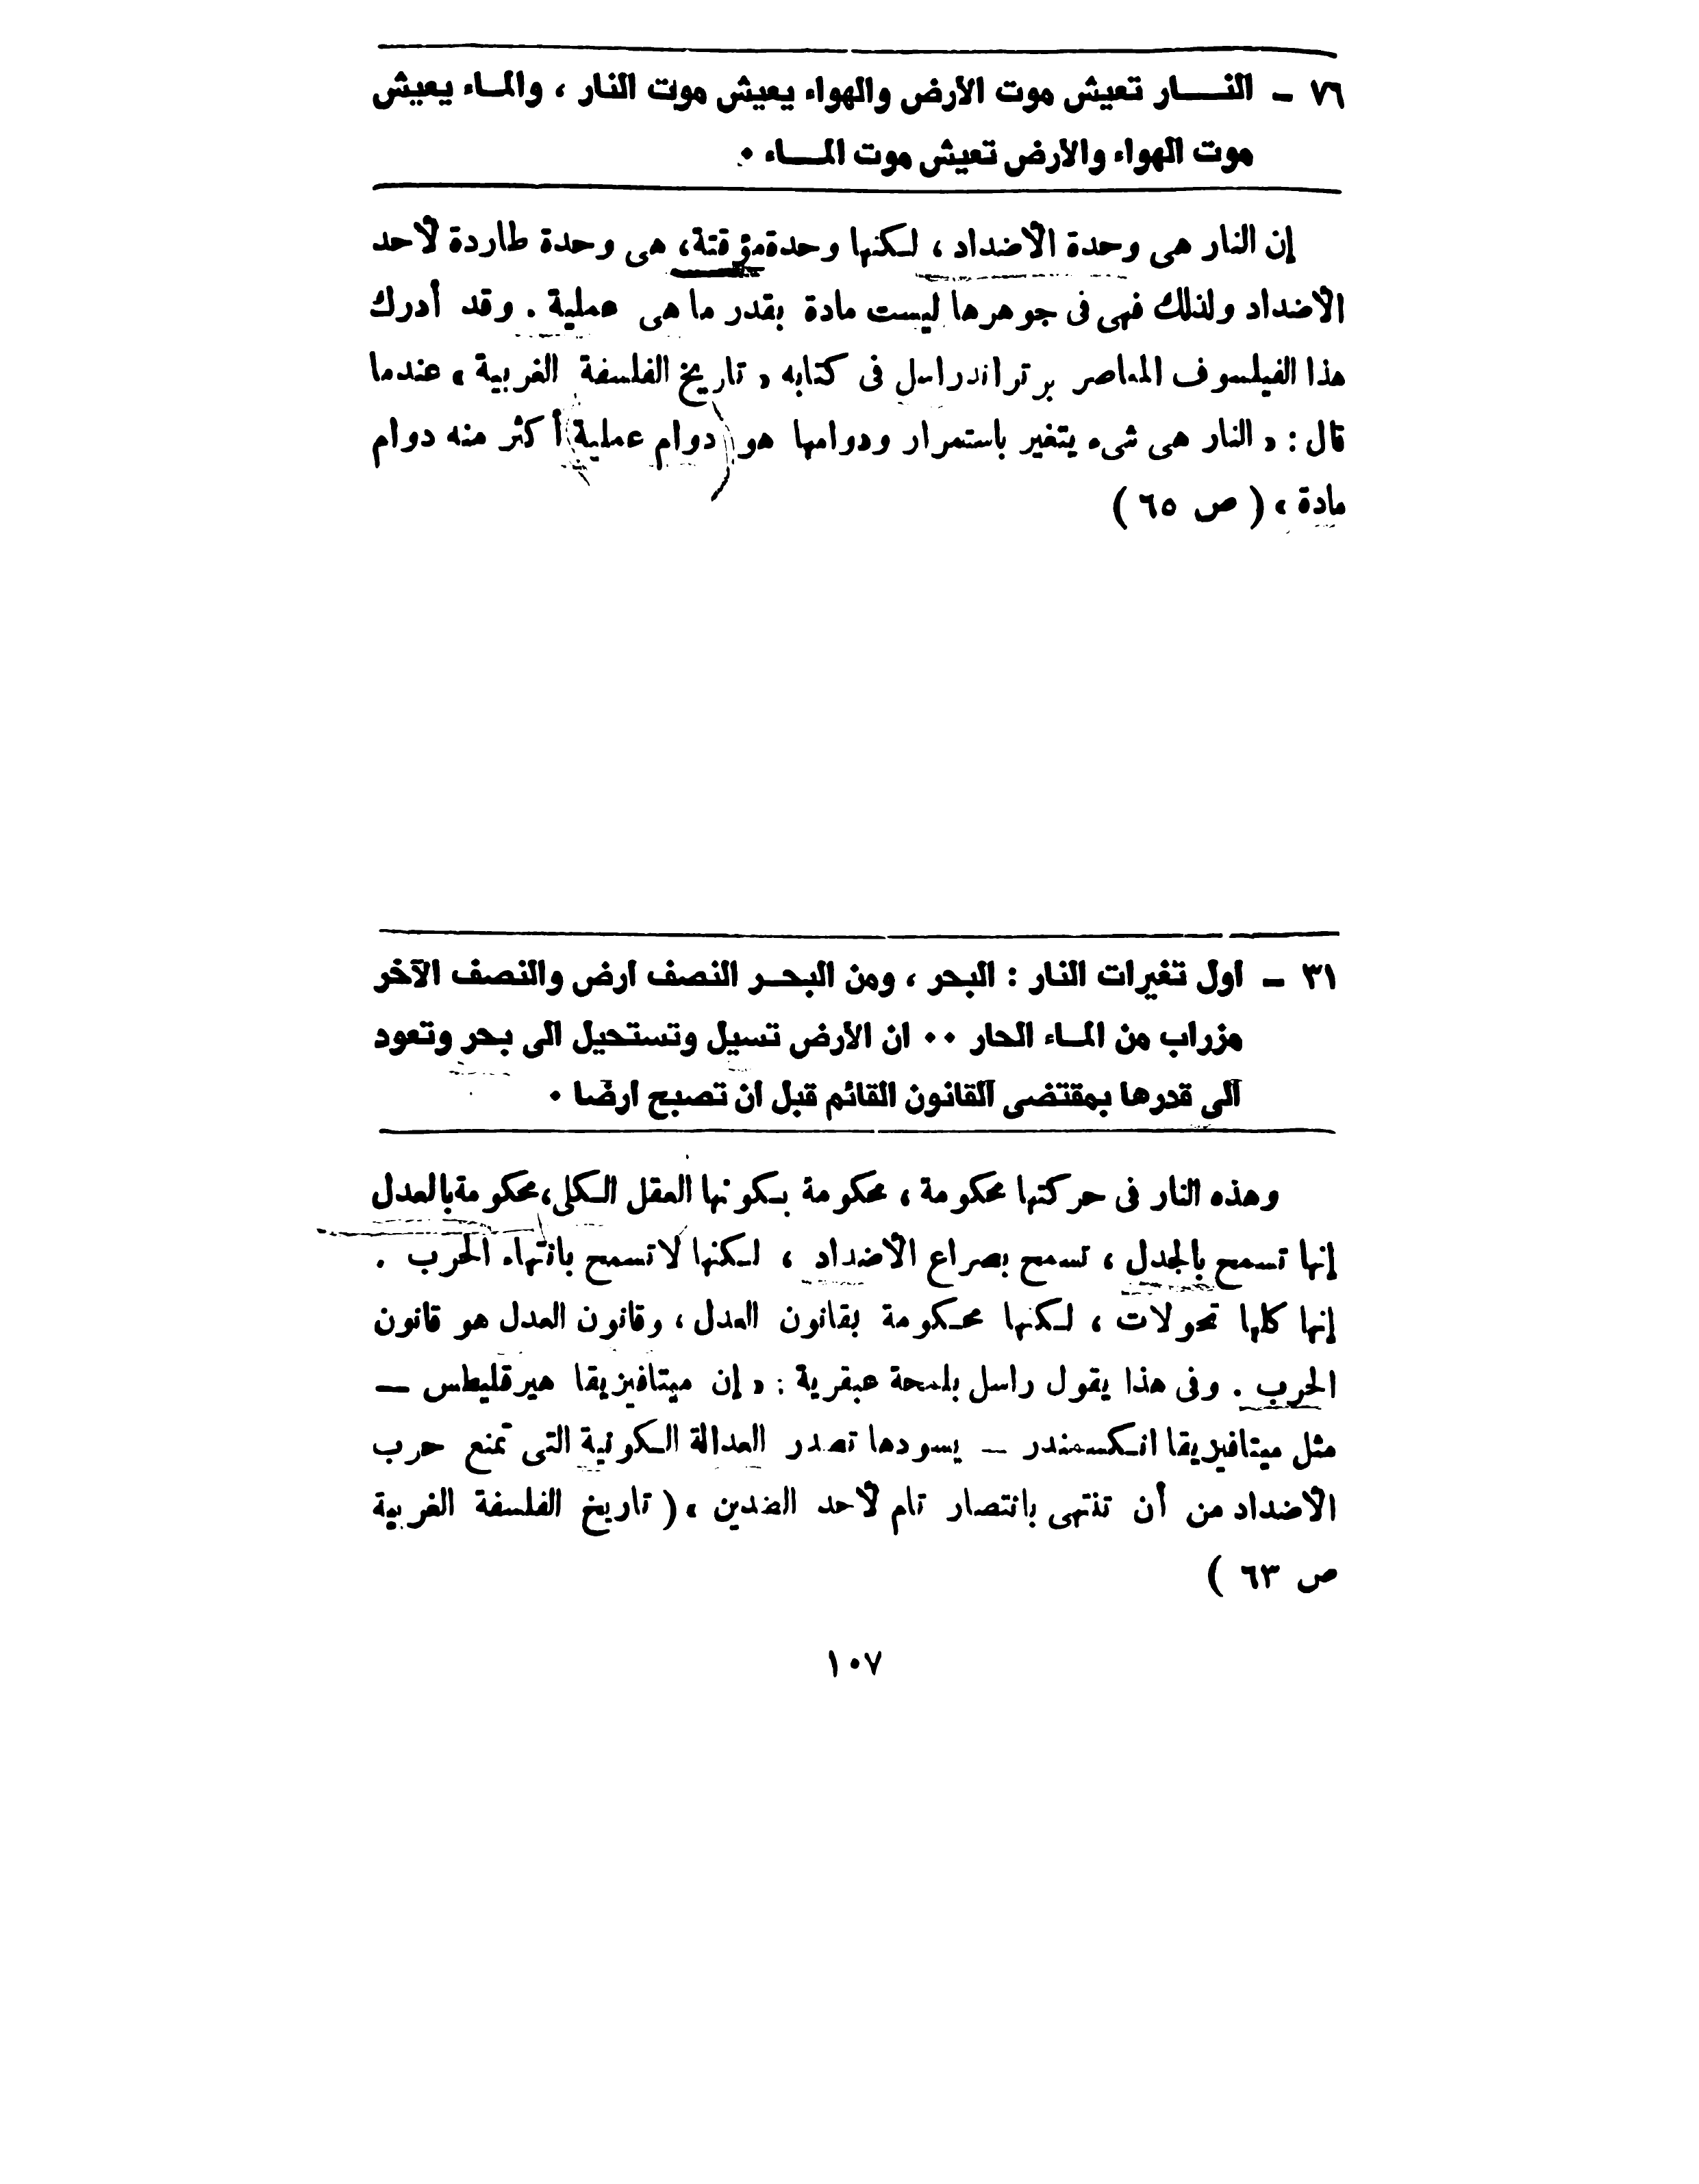 ٧٦ – النـــار تعيش موت الأرض والهواء يعيش موت النار ، والمـاء يعيش
موت الهواء والأرض تعيش موت المـــاء ٠
إن النار هى وحدة الأضداد ، لـكنها وحدة مؤقتة، هى وحدة طاردة لأحد
الأضداد ولذلك فهى فى جوهرها ليست مادة بقدر ما هى عملية . وقد أدرك
هذا الفيلسوف المعاصر برتراندراسل فى كتابه « تاريخ الفلسفة الغربية » عندما
قال : « النار هى شىء يتغير باستمرار ودوامها هو (دوام عملية) أكثر منه دوام
مادة » ( ص ٦٥ )
٣١ – أول تغيرات النار : البحر ، ومن البحـر النصف ارض والنصف الآخر
مزراب من المـاء الحار ٠٠ ان الأرض تسيل وتستحيل الى بحر وتعود
الى قدرها بمقتضى القانون القائم قبل ان تصبح ارضا ٠
وهذه النار فى حركتها محكومة ، محكومة بـكونها العقل الـكلى، محكومة بالعدل
إنها تسمح بالجدل ، تسمح بصراع الأضداد ، لـكنها لا تسمح بانتهاء الحرب .
إنها كلها تحولات ، لـكنها محـكومة بقانون العدل ، وقانون العدل هو قانون
الحرب . وفى هذا يقول راسل بلمحة عبقرية : « إن ميتافيزيقا هيرقليطس —
مثل ميتافيزيقا انـكسمندر — يسودها تصدر العدالة الـكونية التى تمنع حرب
الأضداد من أن تنتهى بانتصار تام لأحد الضدين » ( تاريخ الفلسفة الغربية
ص ٦٣ )
١٠٧